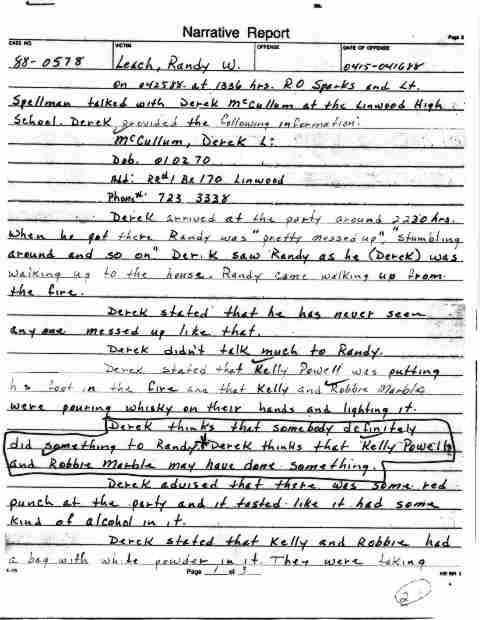 Narrative Report
Page 2
CASE NO. VICTIM OFFENSE DATE OF OFFENSE
88-0578 Leach, Randy W. 0415-041688
On 042588 at 1336 hrs. R.O Sparks and Lt.
Spellman talked with Derek McCullum at the Linwood High
School. Derek provided the following information:
McCullum, Derek L:
Dob. 010270
Add: RR#1 Bx 170 Linwood
Phone#: 723 3338
Derek arrived at the party around 2230 hrs.
When he got there Randy was "pretty messed up", "stumbling
around and so on". Derek saw Randy as he (Derek) was
walking up to the house. Randy came walking up from
the fire.
Derek stated that he has never seen
anyone messed up like that.
Derek didn't talk much to Randy.
Derek stated that Kelly Powell was putting
his foot in the fire and that Kelly and Robbie Marble
were pouring whisky on their hands and lighting it.
Derek thinks that somebody definitely
did something to Randy. Derek thinks that Kelly Powell
and Robbie Marble may have done something.
Derek advised that there was some red
punch at the party and it tasted like it had some
kind of alcohol in it.
Derek stated that Kelly and Robbie had
a bag with white powder in it. They were taking
Page 1 of 3
2